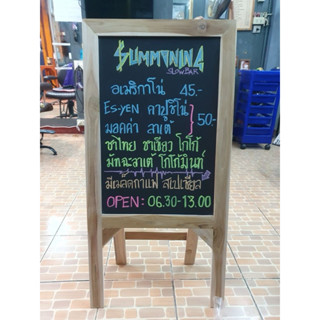 SUMMONING
SLOWBAR
อเมริกาโน่ 45.-
ES-YEN คาปูชิโน่
มอคค่า ลาเต้ 50.-
ชาไทย ชาเขียว โกโก้
มัทฉะลาเต้ โกโก้มิ้นท์
มีเมล็ดกาแฟ สเปเชียล
OPEN: 06.30-13.00